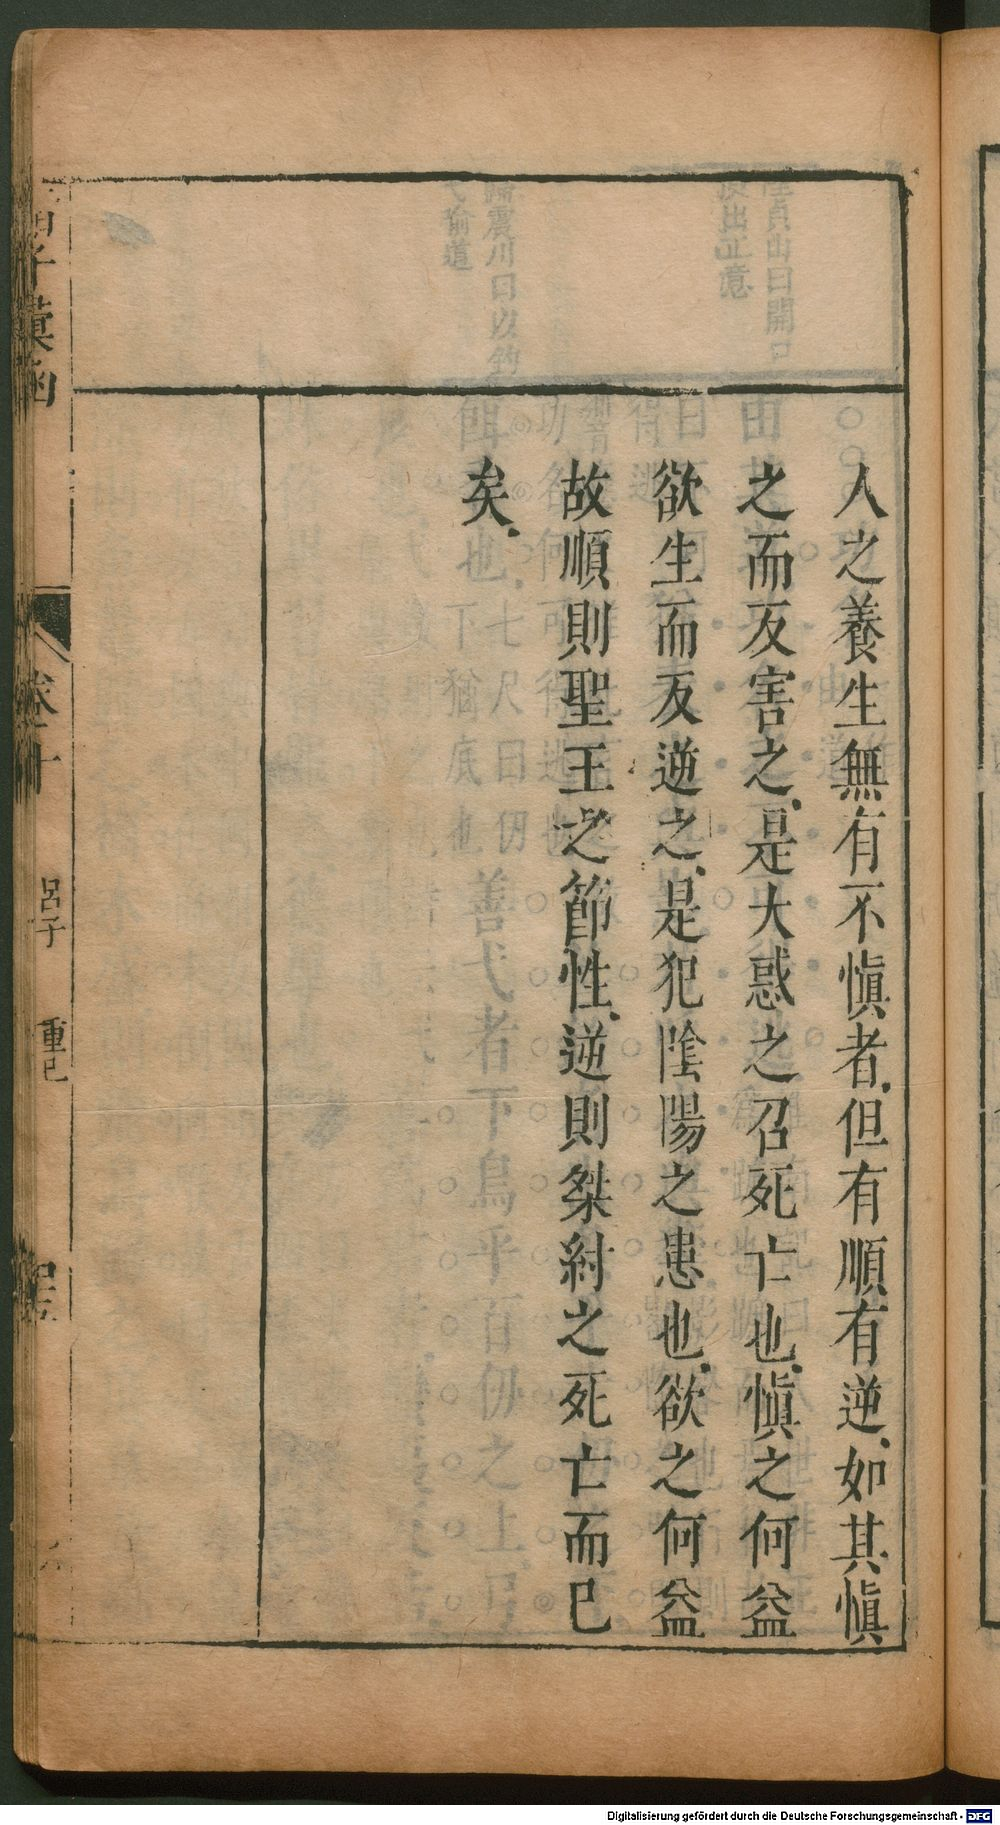 人之養生無有不愼者.但有順有逆.如其愼
之而反害之.是大惑之召死亡也.愼之何益
欲生而反逆之.是犯陰陽之患也.欲之何益
故順則聖王之節性.逆則桀紂之死亡而已
矣.
子彙函
卷十
呂子 重己
Digitalisierung gefördert durch die Deutsche Forschungsgemeinschaft - DFG